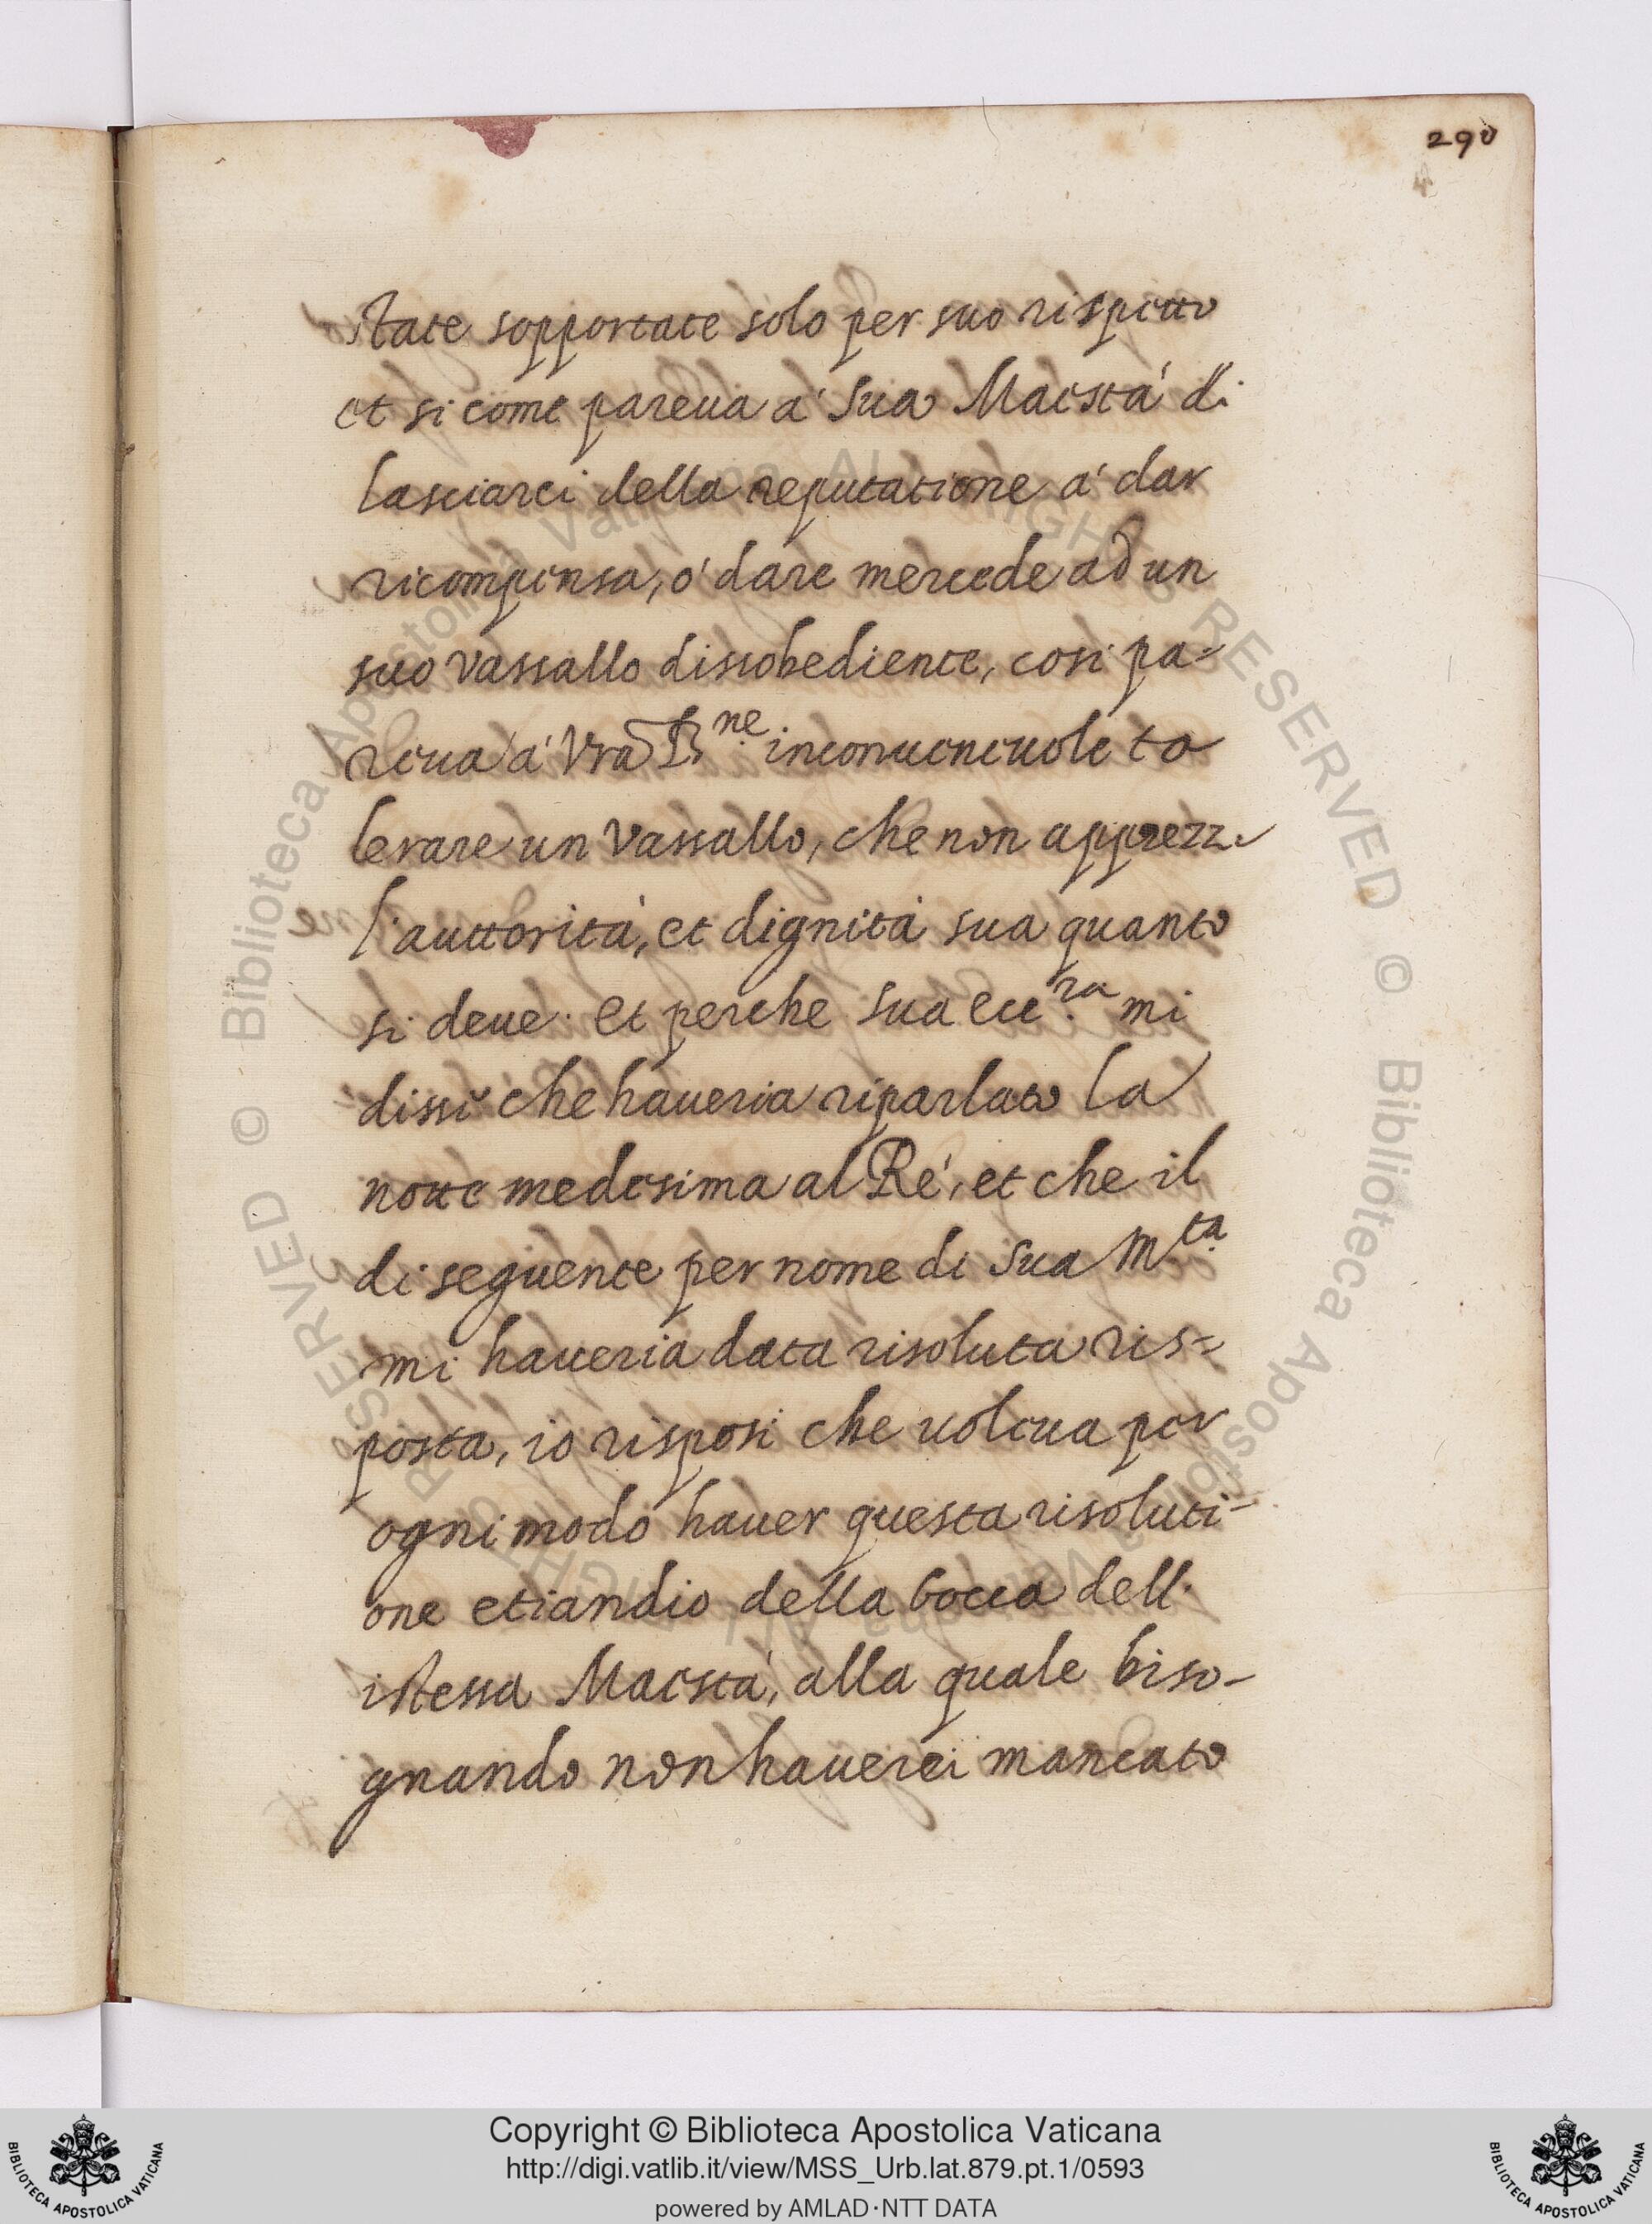 290
state sopportate solo per suo rispetto
et si come pareua a' sua Maestà di
lasciarci della reputatione a' dar
ricompensa, o' dare mercede ad un
suo vassallo dissobediente, cosi pa=
reua a' Vra B.ne inconueneuole to
lerare un Vassallo, che non apprezzi
l'auttorità, et dignità sua quanto
si deue. et perche sua ecc.za mi
dissi che haueria riparlato la
notte medesima al Ré, et che il
di seguente per nome di sua M.ta
mi haueria data risoluta ris=
posta, io risposi che uoleua per
ogni modo hauer questa risoluti-
one etiandio della bocca dell'
istessa Maestà, alla quale biso-
gnando non hauerei mancato
© Biblioteca Apostolica Vaticana ALL RIGHTS RESERVED © Biblioteca Apostolica Vaticana ALL RIGHTS RESERVED
Copyright © Biblioteca Apostolica Vaticana
http://digi.vatlib.it/view/MSS_Urb.lat.879.pt.1/0593
powered by AMLAD·NTT DATA
BIBLIOTECA APOSTOLICA VATICANA
BIBLIOTECA APOSTOLICA VATICANA